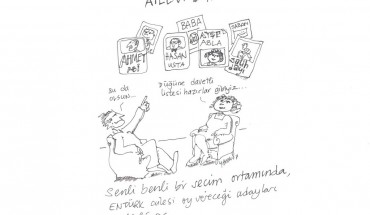 BABA
AHMET
HASAN
USTA
AYŞE
ABLA
Bu da
olsun...
Düğüne davetli
listesi hazırlar gibiyiz...
Senli benli bir seçim ortamında,
ENTÜRK ailesi oy vereceği adayları